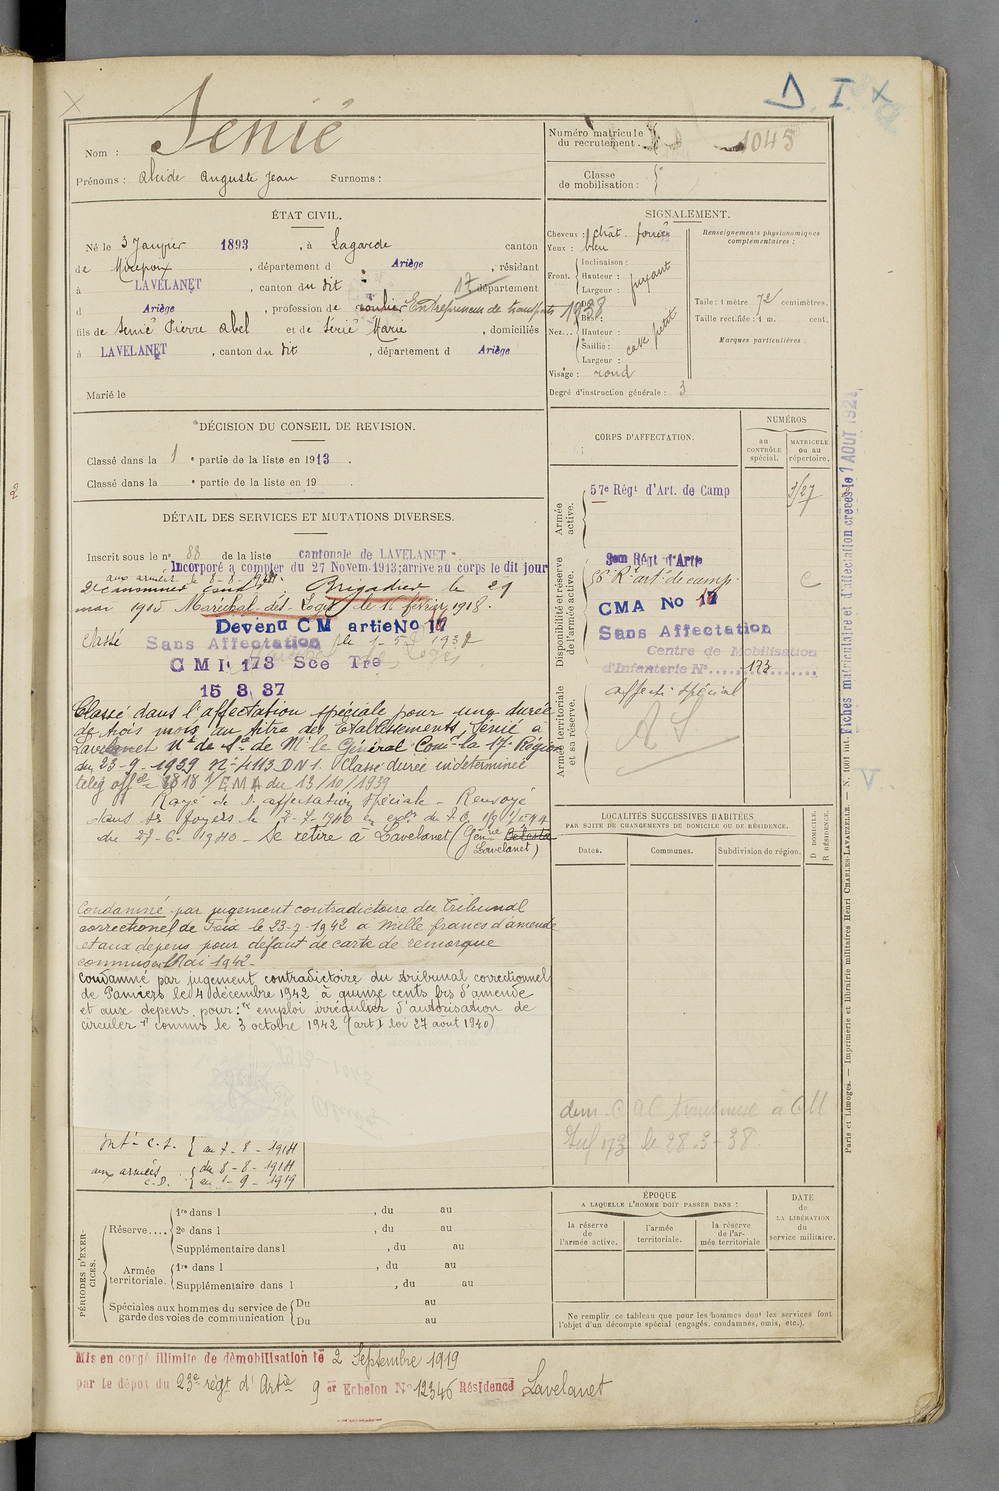 D. I. x
Nom : Senié
Prénoms : Alcide Auguste Jean Surnoms :
Numéro matricule du recrutement. 1045
Classe de mobilisation :
ÉTAT CIVIL.
Né le 3 Janvier 1893, à Lagarde canton
de Mirepoix, département d Ariège, résidant
à LAVELANET, canton du dit 17 département
d Ariège, profession de roulier Entrepreneur de transports 1938
fils de Senié Pierre Abel et de Série Marie, domiciliés
à LAVELANET, canton du dit, département d Ariège
Marié le
SIGNALEMENT.
Cheveux : chât. foncés
Yeux : bleu
Front. Inclinaison :
Hauteur : fuyant
Largeur :
Nez... Dos :
Base :
Hauteur :
Saillie :
Largeur : petit
Visage : rond
Degré d'instruction générale : 3
Renseignements physionomiques complémentaires :
Taille : 1 mètre 72 centimètres.
Taille rectifiée : 1 m. cent.
Marques particulières :
DÉCISION DU CONSEIL DE REVISION.
Classé dans la 1e partie de la liste en 1913.
Classé dans la e partie de la liste en 19 .
DÉTAIL DES SERVICES ET MUTATIONS DIVERSES.
Inscrit sous le n° 88 de la liste cantonale de LAVELANET.
Incorporé a compter du 27 Novem. 1913; arrivé au corps le dit jour
aux armées le 8-8-1914.
Brigadier le 29
mai 1915 Maréchal-des-Logis le 16 février 1918.
Devenu C M artie No 17
Classé Sans Affectation le 1
C M I 173 Sce Tre
15 3 37
Classé dans l'affectation spéciale pour une durée
de trois mois au titre des Etablissements Sénié à
Lavelanet Nte de Sce de Mr le Général Comt la 17e Région
du 23-9-1939 n° 4113 DN1. Classé durée indéterminée
teleg offel 1818 1/E.M.A du 13/10/1939
Rayé de l'affectation spéciale - Renvoyé
dans ses foyers le
du 27-6-1940 - Se retire à Lavelanet
Lavelanet)
Condamné par jugement contradictoire du Tribunal
correctionnel de Foix le 23-7-1942 à Mille francs d'amende
et aux depens pour défaut de carte de remorque
commis en Mai 1942-
Condamné par jugement contradictoire du tribunal correctionnel
de Pamiers le 4 décembre 1942 à quinze cents frs d'amende
et aux depens pour : "emploi irrégulier d'autorisation de
circuler" commis le 3 octobre 1942 (art 1 loi 27 août 1940)
Int- C.S. { au 7-8-1914
aux armées { du 8-8-1914
C.D. { au 1-9-1919
CORPS D'AFFECTATION.
NUMÉROS
au contrôle spécial.
MATRICULE ou au répertoire.
Armée active.
57e Régt d'Art. de Camp
Disponibilité et réserve de l'armée active.
C
CMA No 17
Sans Affectation
Centre de Mobilisation
d'Infanterie N° 173
Armée territoriale et sa réserve.
Affect. spécial
A S
LOCALITÉS SUCCESSIVES HABITÉES
PAR SUITE DE CHANGEMENTS DE DOMICILE OU DE RÉSIDENCE.
Dates. Communes. Subdivision de région.
D DOMICILE.
R RÉSIDENCE.
Inf 173 le 28-3-38
PÉRIODES D'EXERCICES.
Réserve....
1re dans l , du au
2e dans l , du au
Supplémentaire dans l , du au
Armée territoriale.
1re dans l , du au
Supplémentaire dans l , du au
Spéciales aux hommes du service de garde des voies de communication
Du au
Du au
ÉPOQUE
A LAQUELLE L'HOMME DOIT PASSER DANS :
la réserve de l'armée active.
l'armée territoriale.
la réserve de l'armée territoriale
DATE de LA LIBÉRATION du service militaire.
Ne remplir ce tableau que pour les hommes dont les services font
l'objet d'un décompte spécial (engagés, condamnés, omis, etc.).
Mis en congé illimité de démobilisation le 2 Septembre 1919
par le dépot du 23e régt d'Artie 9 er Echelon No 12346 Résidence Lavelanet
Fiches matriculaire et d'affectation créées le 1 AOUT 1921
V.
Paris et Limoges. — Imprimerie et librairie militaires Henri CHARLES-LAVAUZELLE. — N. 1001 int.